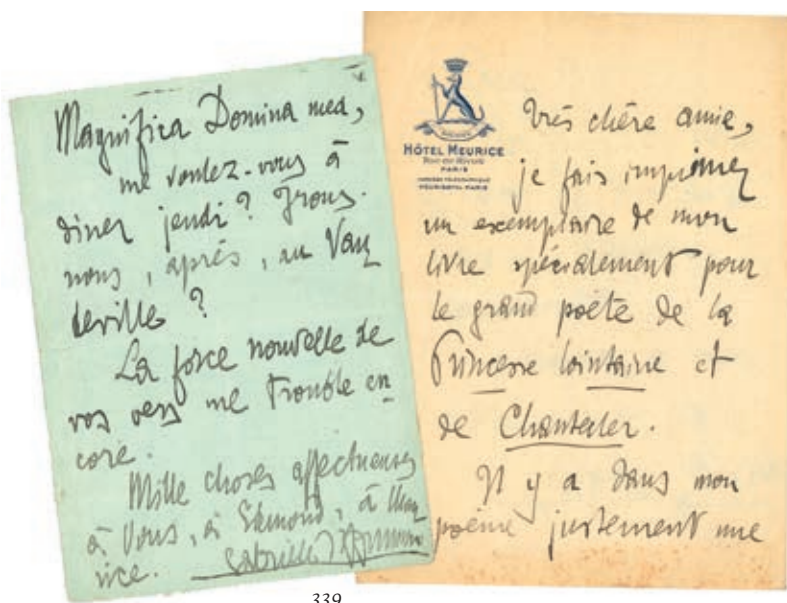 Magnifica Domina mea,
me voulez-vous à
diner jeudi ? Irons-
nous, après, au Vau
deville ?
La force nouvelle de
vos vers me trouble en
core.
Mille choses affectueuses
à Vous, à Edmond, à Mau
rice. Gabriele d'Annunzio
HÔTEL MEURICE
Rue de Rivoli
PARIS
ADRESSE TÉLÉGRAPHIQUE
MEURISOTEL-PARIS
Très chère amie,
je fais imprimer
un exemplaire de mon
livre spécialement pour
le grand poète de la
Princesse lointaine et
de Chantecler.
Il y a dans mon
poème justement une
339